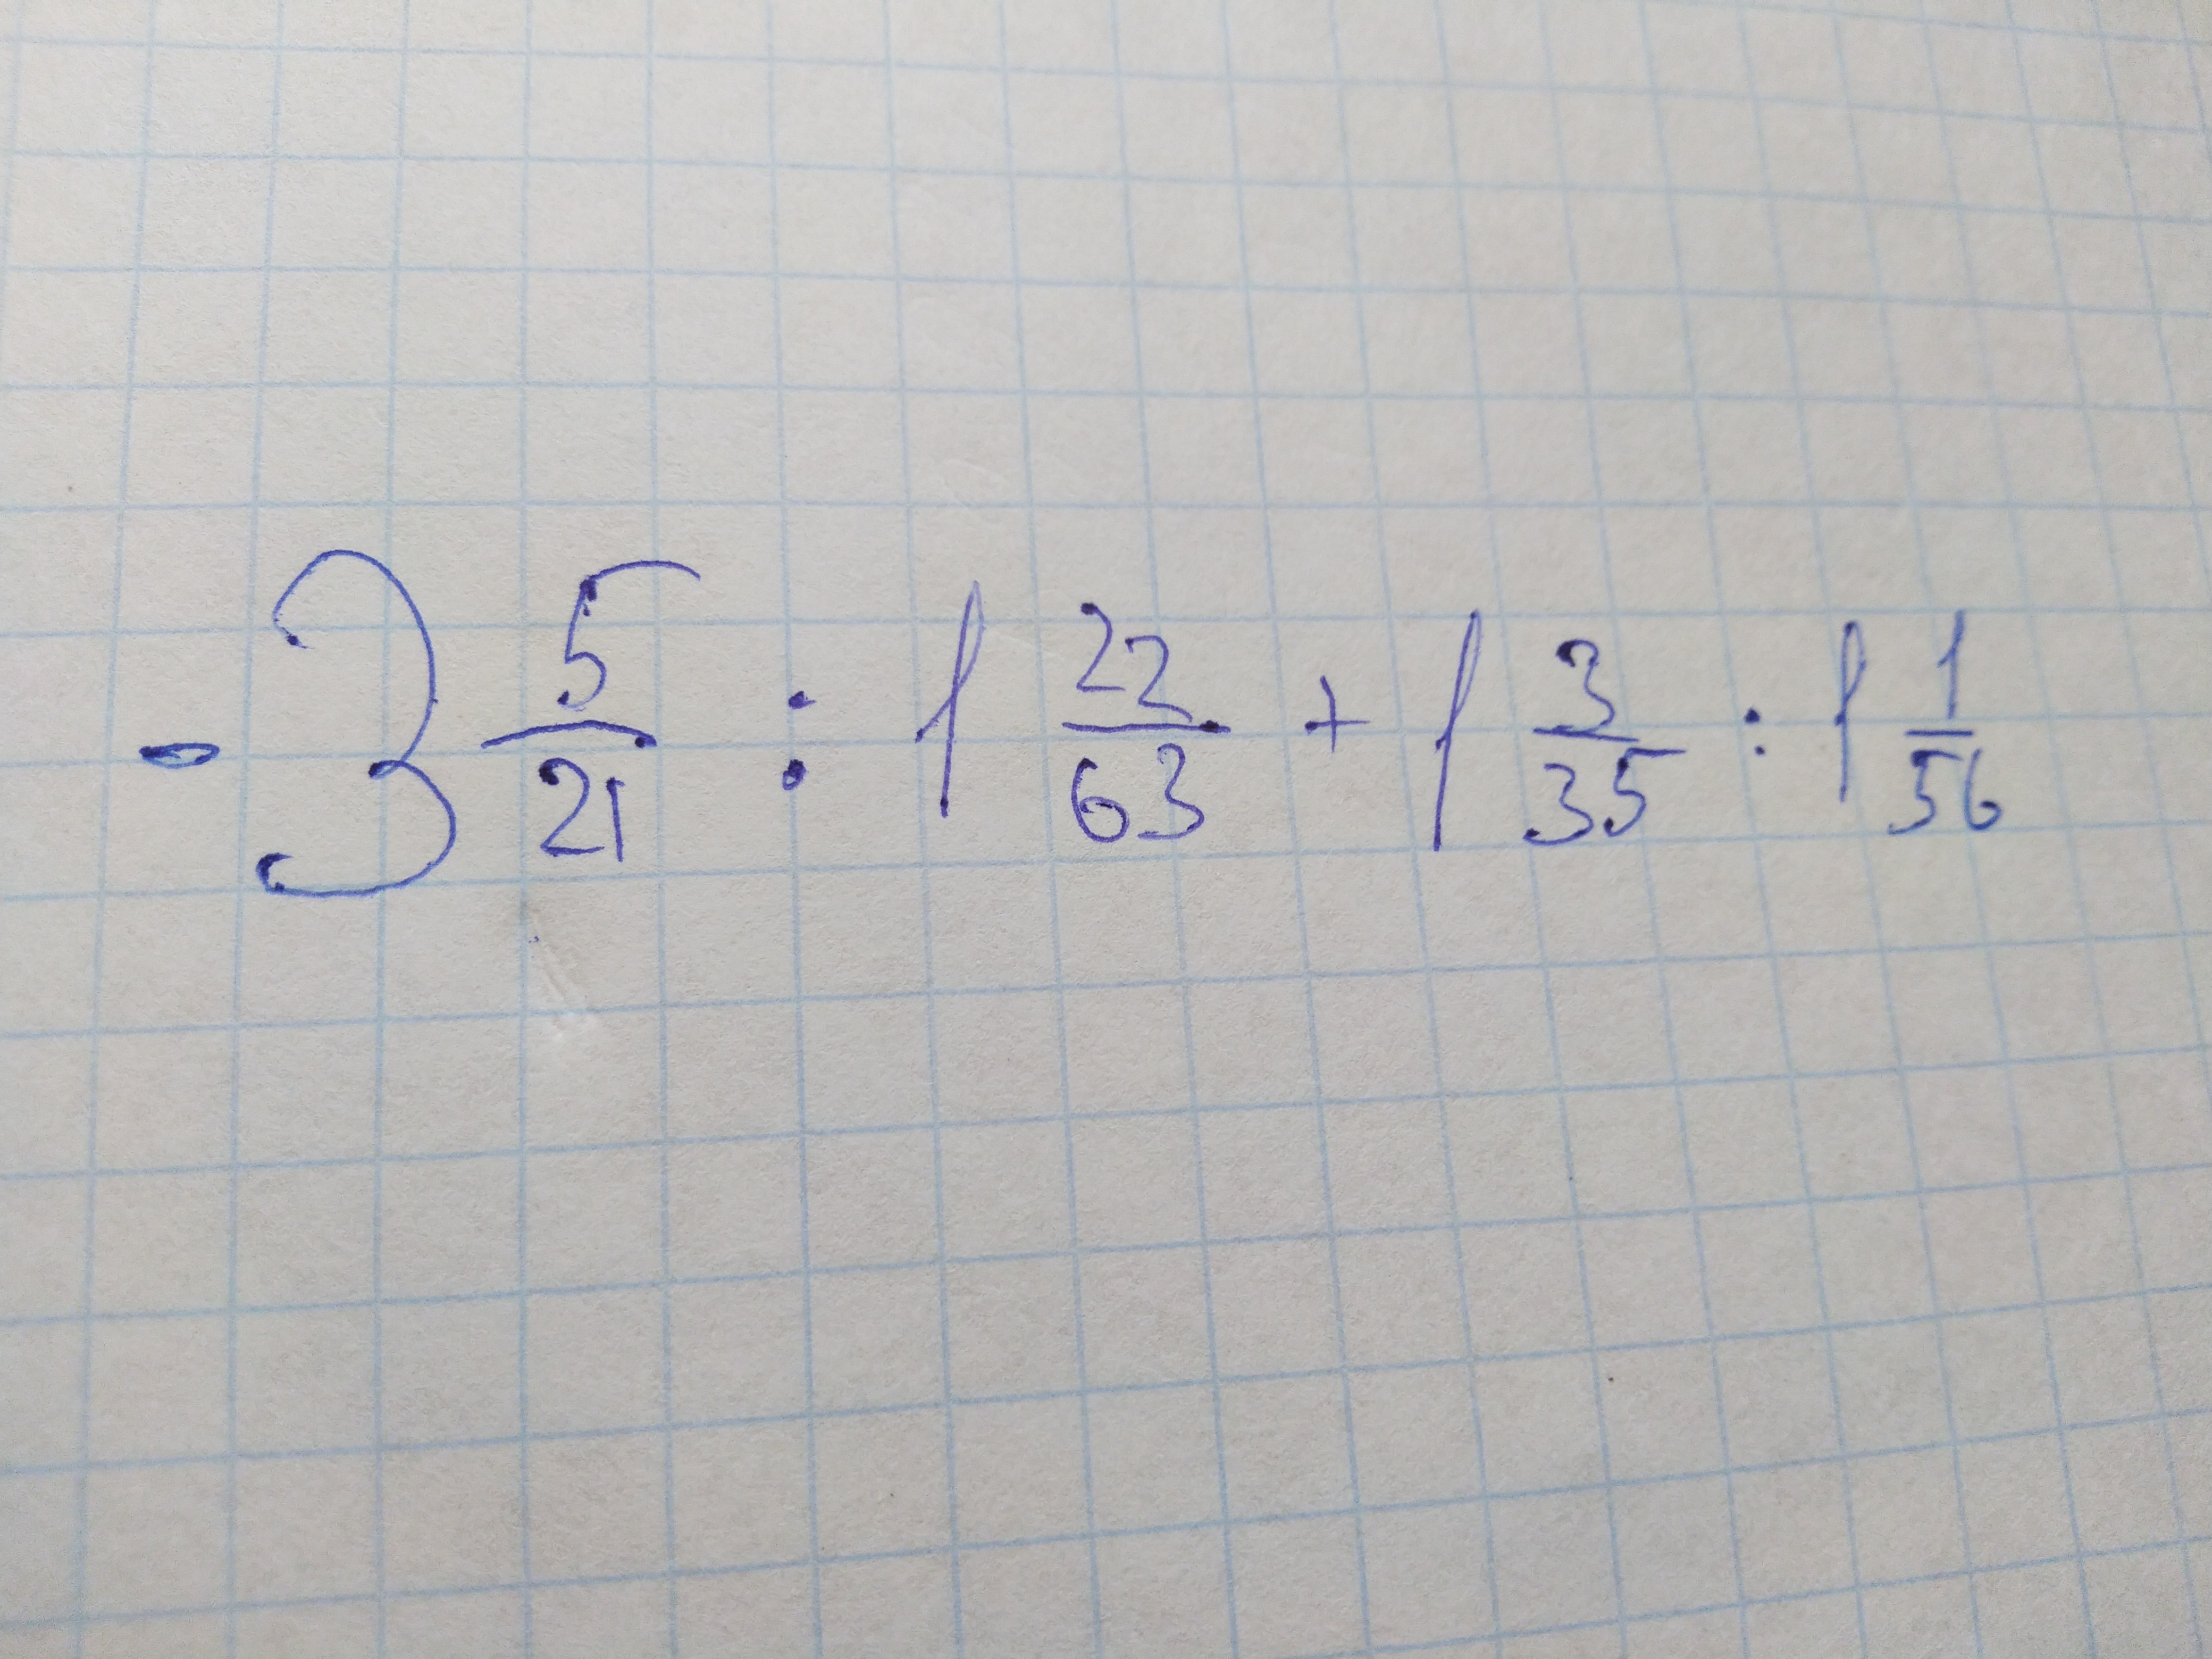 -3 5/21 : 1 22/63 + 1 3/35 : 1 1/56